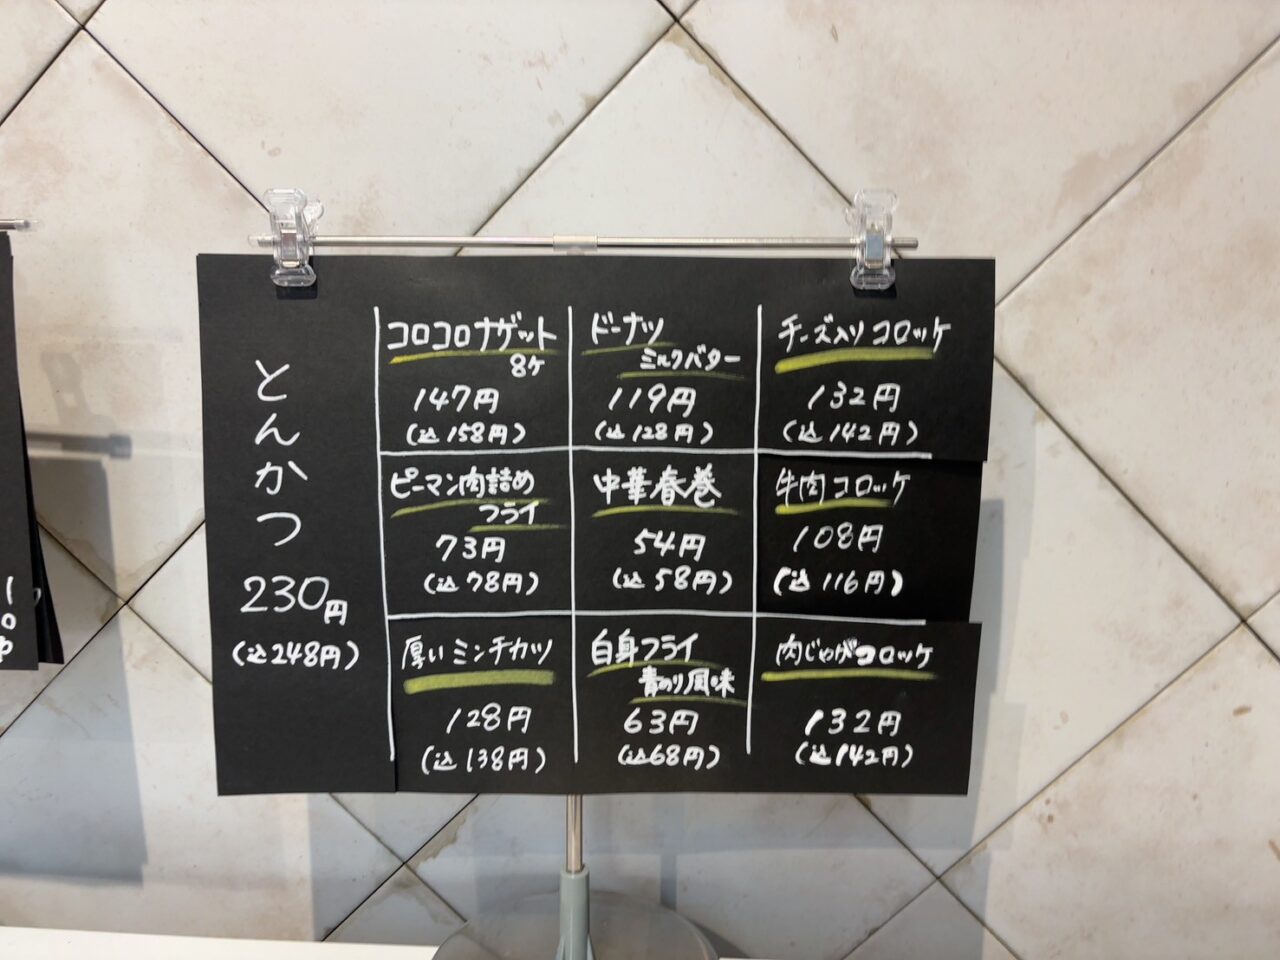 とんかつ
230円
(込248円)
コロコロナゲット
8ケ
147円
(込158円)
ドーナツ
ミルクバター
119円
(込128円)
チーズ入りコロッケ
132円
(込142円)
ピーマン肉詰め
フライ
73円
(込78円)
中華春巻
54円
(込58円)
牛肉コロッケ
108円
(込116円)
厚いミンチカツ
128円
(込138円)
白身フライ
青のり風味
63円
(込68円)
肉じゃがコロッケ
132円
(込142円)